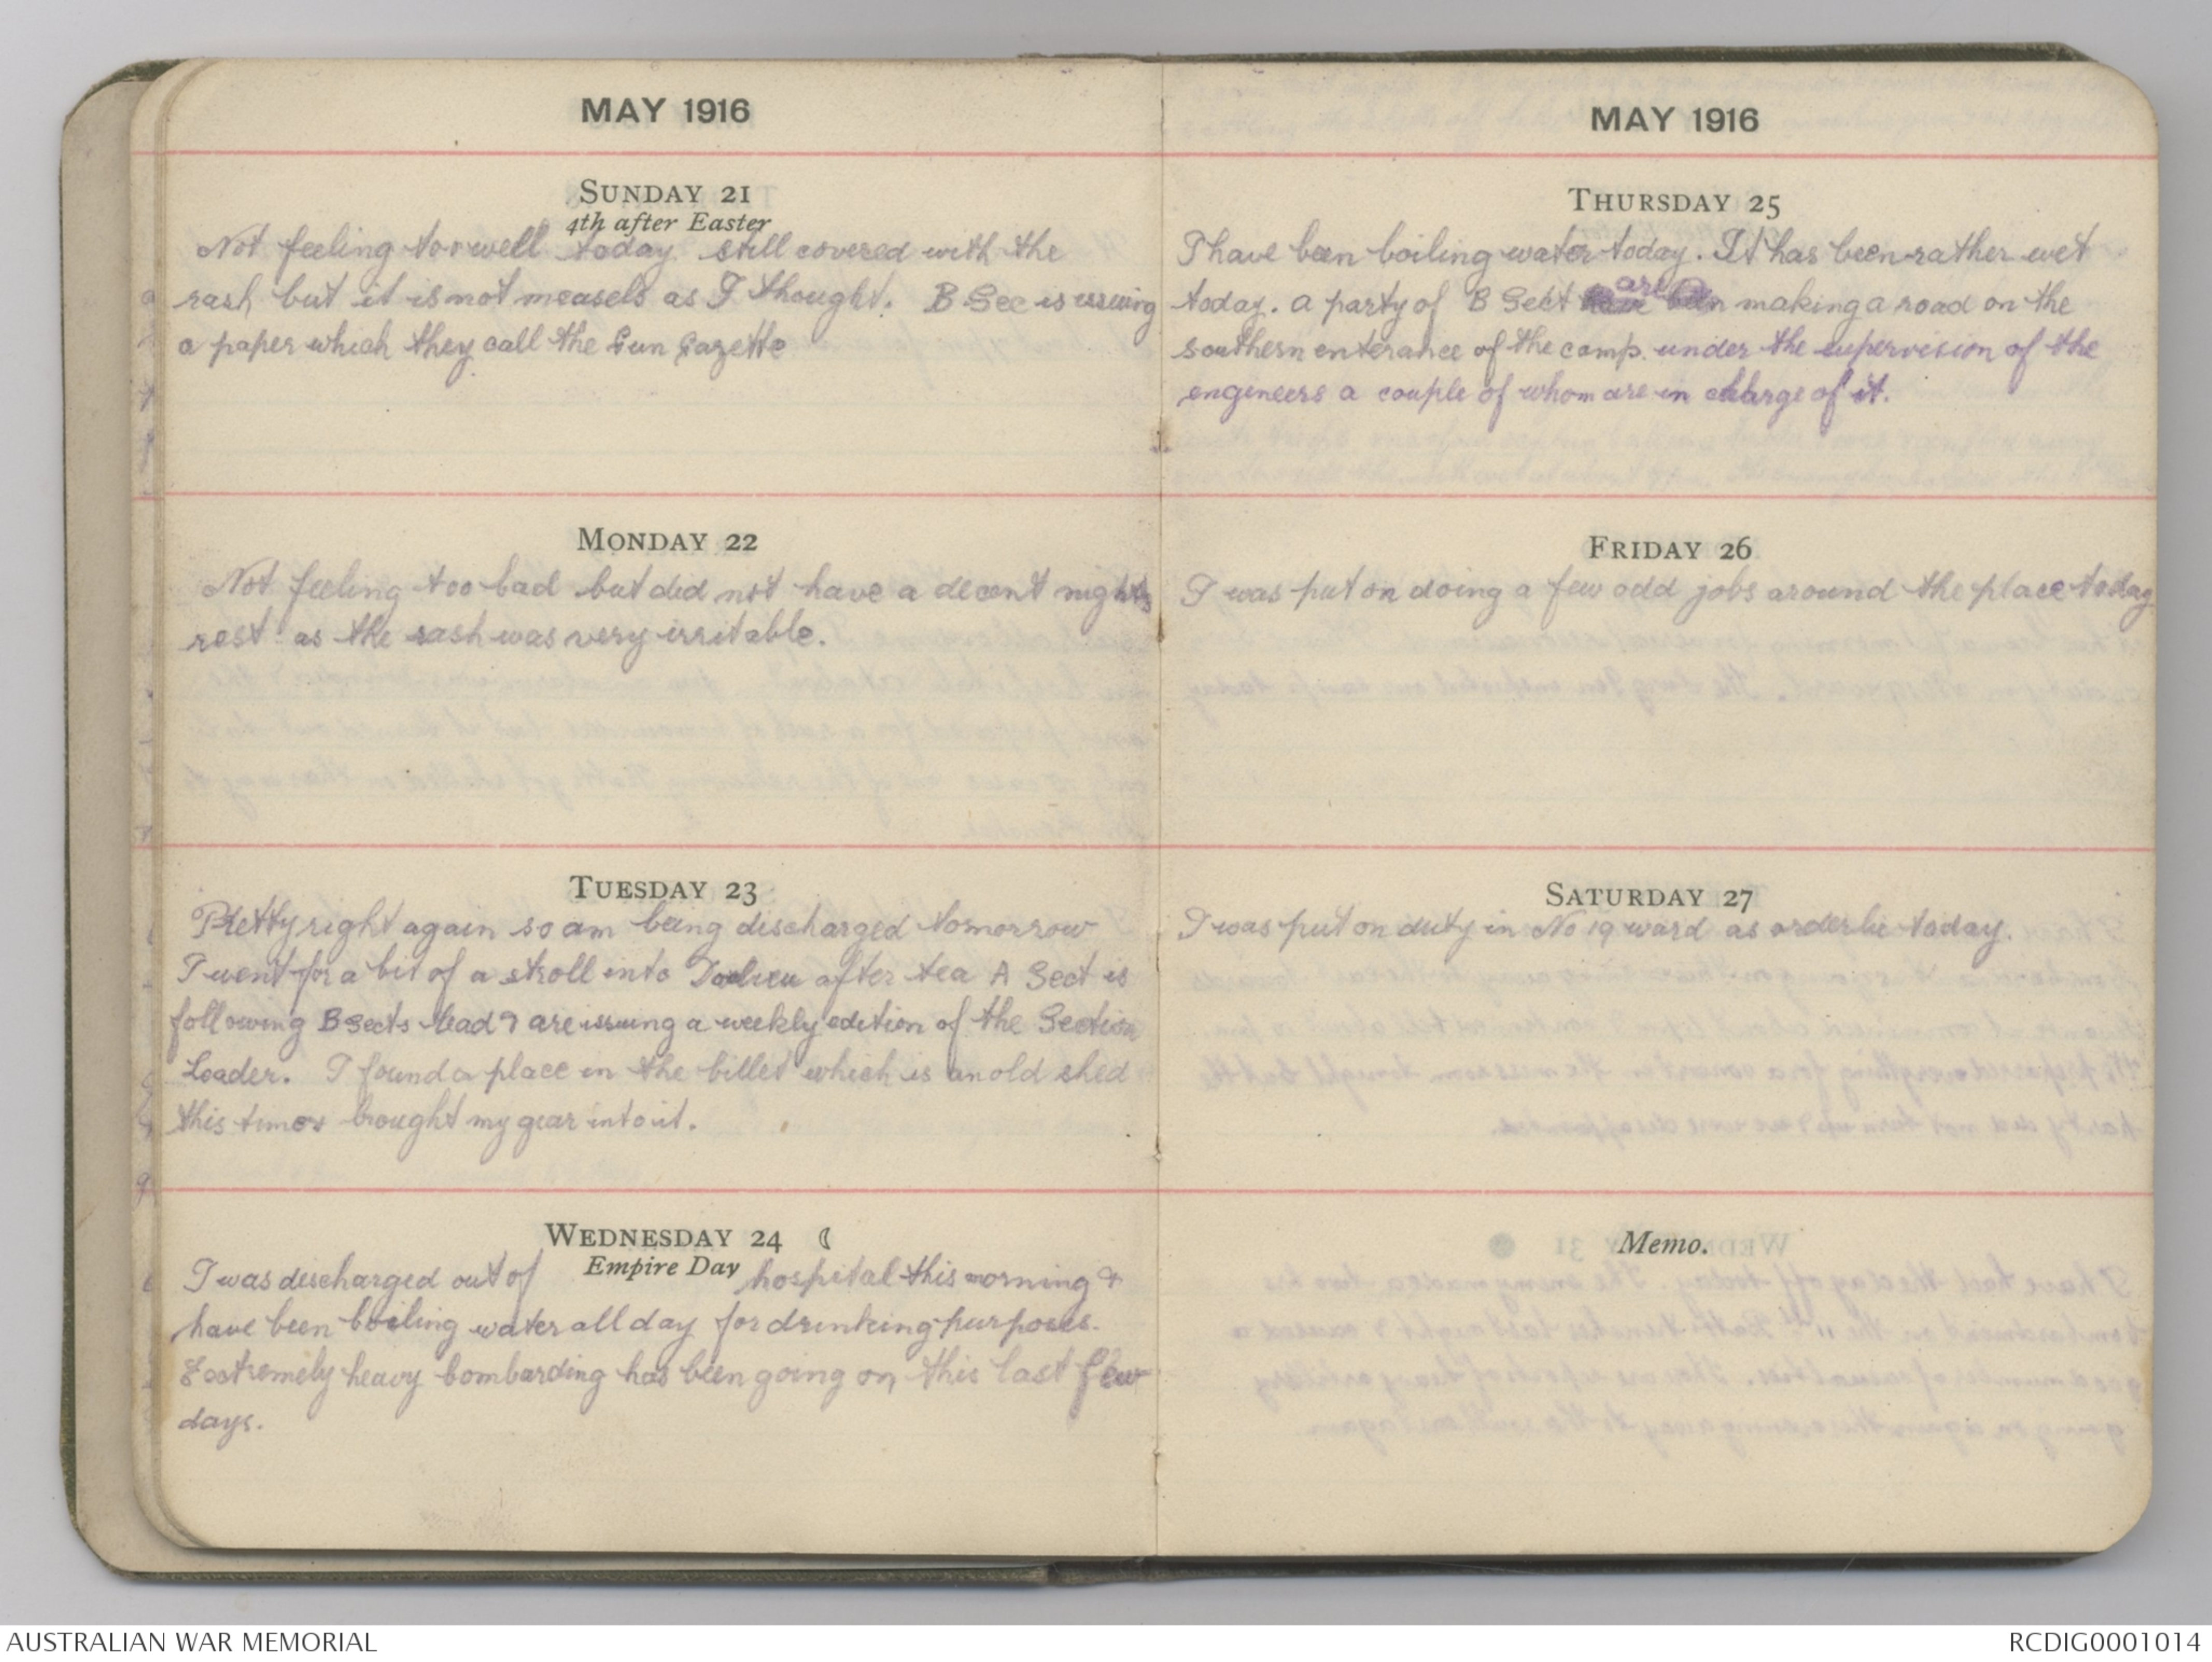 MAY 1916
SUNDAY 21
4th after Easter
Not feeling too well today still covered with the
rash but it is not measels as I thought. B Sec is issuing
a paper which they call the Gun Gazette
MONDAY 22
Not feeling too bad but did not have a decent nights
rest as the rash was very irritable.
TUESDAY 23
Pretty right again so am being discharged tomorrow
I went for a bit of a stroll into after tea A Sect is
following B Sects lead & are issuing a weekly edition of the Section
Leader. I found a place in the billet which is an old shed
this time & brought my gear into it.
WEDNESDAY 24
Empire Day
I was discharged out of hospital this morning &
have been boiling water all day for drinking purposes.
Extremely heavy bombarding has been going on this last few
days.
MAY 1916
THURSDAY 25
I have been boiling water today. It has been rather wet
today. a party of B Sect are making a road on the
southern enterance of the camp. under the supervision of the
engineers a couple of whom are in charge of it.
FRIDAY 26
I was put on doing a few odd jobs around the place today
SATURDAY 27
I was put on duty in No 19 ward as orderlie today.
Memo.
AUSTRALIAN WAR MEMORIAL
RCDIG0001014